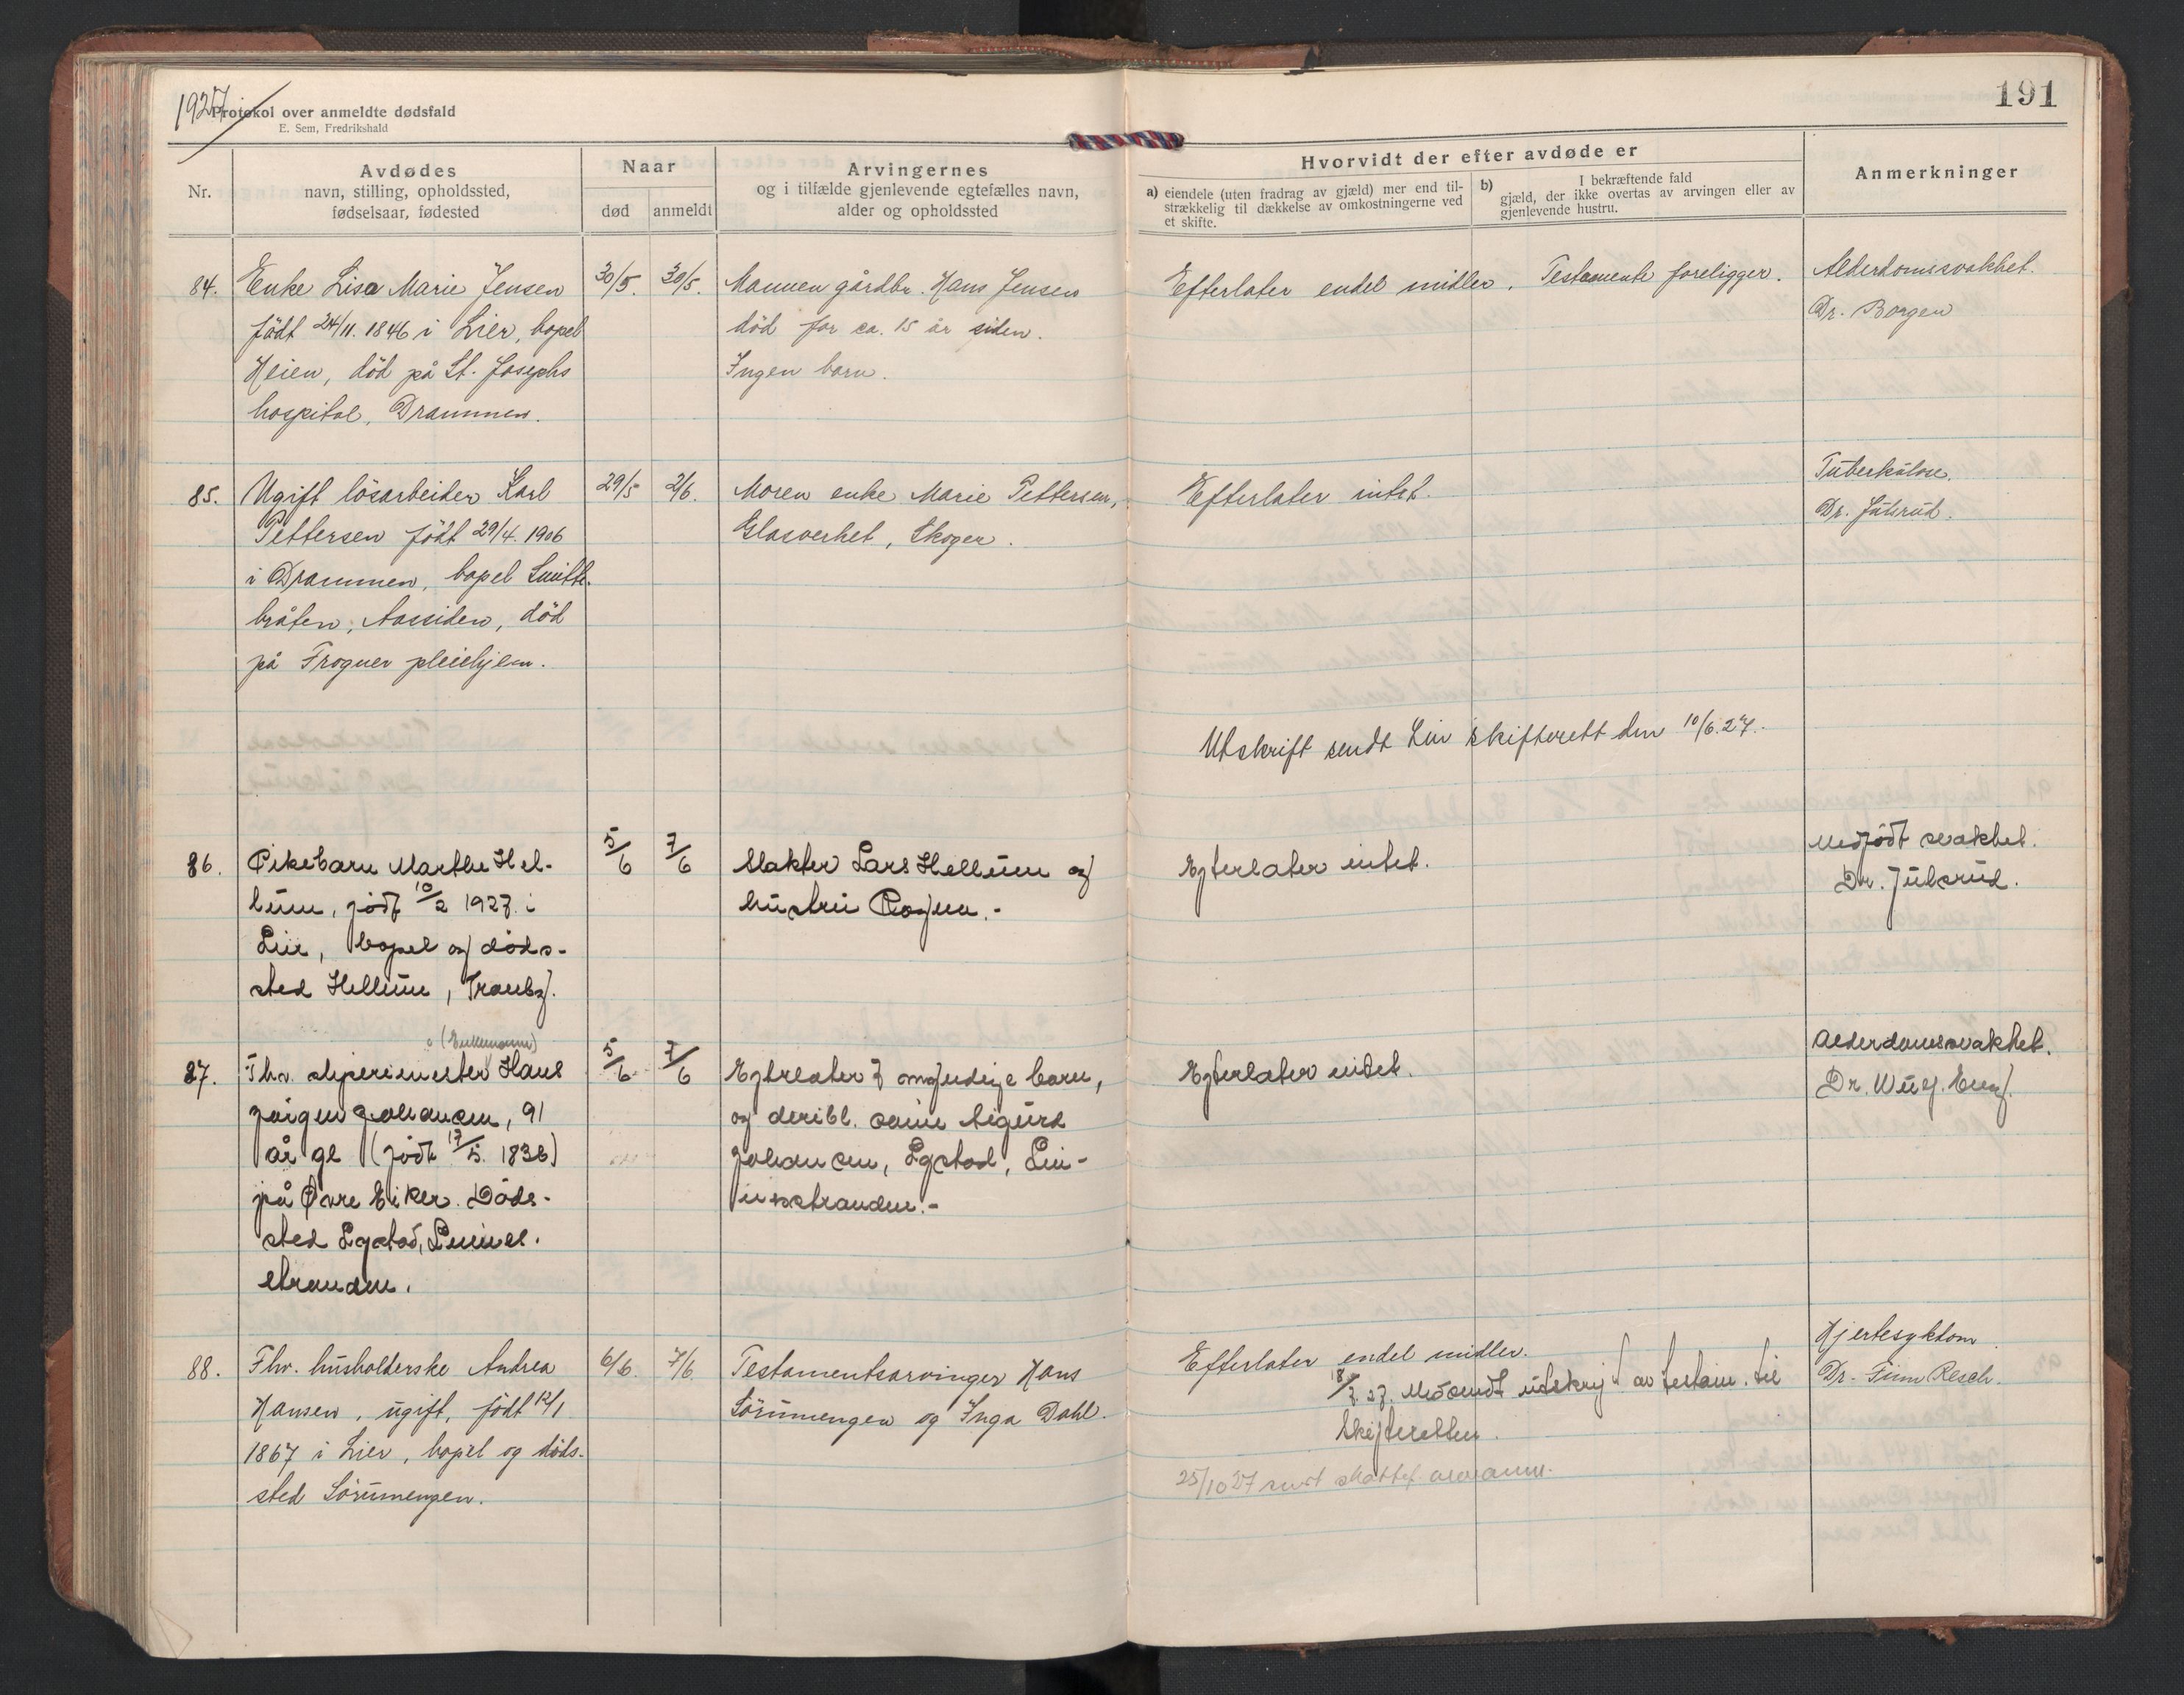 1927
Protokol over anmeldte dødsfald
E. Sem, Fredrikshald
191
Nr.
Avdødes
navn, stilling, opholdssted,
fødselsaar, fødested
Naar
død
anmeldt
Arvingernes
og i tilfælde gjenlevende egtefælles navn,
alder og opholdssted
Hvorvidt der efter avdøde er
a) eiendele (uten fradrag av gjæld) mer end til-
strækkelig til dækkelse av omkostningerne ved
et skifte.
b) I bekræftende fald
gjæld, der ikke overtas av arvingen eller av
gjenlevende hustru.
Anmerkninger
84.
Enke Lisa Marie Jensen
født 24/11. 1846 i Lier, bopel
Heien, död på St. Josephs
hospital, Drammen.
30/5.
30/5.
Mannen gårdbr. Hans Jensen
død for ca. 15 år siden.
Ingen barn.
Efterlater endel midler. Testamente foreligger.
Alderdomssvakhet.
Dr. Borgen
85.
Ugift lösarbeider Karl
Pettersen födt 29/4. 1906
i Drammen, bopel
bråten, Aassiden, död
på Frogner pleiehjem.
29/5
2/6.
Moren enke Marie Pettersen,
Glasverket, Skoger.
Efterlater intet.
Tuberkulose.
Dr. Julsrud.
Utskrift sendt Lier skifterett den 10/6.27.
86.
Pikebarn Marthe Hel-
lum, født 10/2 1927 i
Lier, bopel og døds-
sted Hellum, Tranby.
5/6
7/6
Slakter Lars Hellum og
hustru
Efterlater intet.
Medfödt svakhet.
Dr. Julsrud.
87.
(Enkemann)
Fhv. sliperimester Hans
Jørgen Johansen, 91
år gl (født 17/5. 1836)
på Øvre Eiker. Döds-
sted Egstad, Linnes-
stranden.
5/6
7/6
Efterlater 7 myndige barn,
og deribl. sønn Sigurd
Johansen, Egstad, Lin-
nesstranden.-
Efterlater intet.
Alderdomssvakhet.
Dr. Wulf. Eng.
88.
Fhv. husholderske Andrea
Hansen, ugift, födt 12/1
1867 i Lier, bopel og döds-
sted Sörumengen.
6/6.
7/6.
Testamentsarvinger Hans
Sörumengen og Inga Dahl.
Efterlater endel midler.
18/7.27. utskrift av testam. til
Skifteretten.
25/10 27 sendt
Hjertesykdom
Dr. Finn Resch.